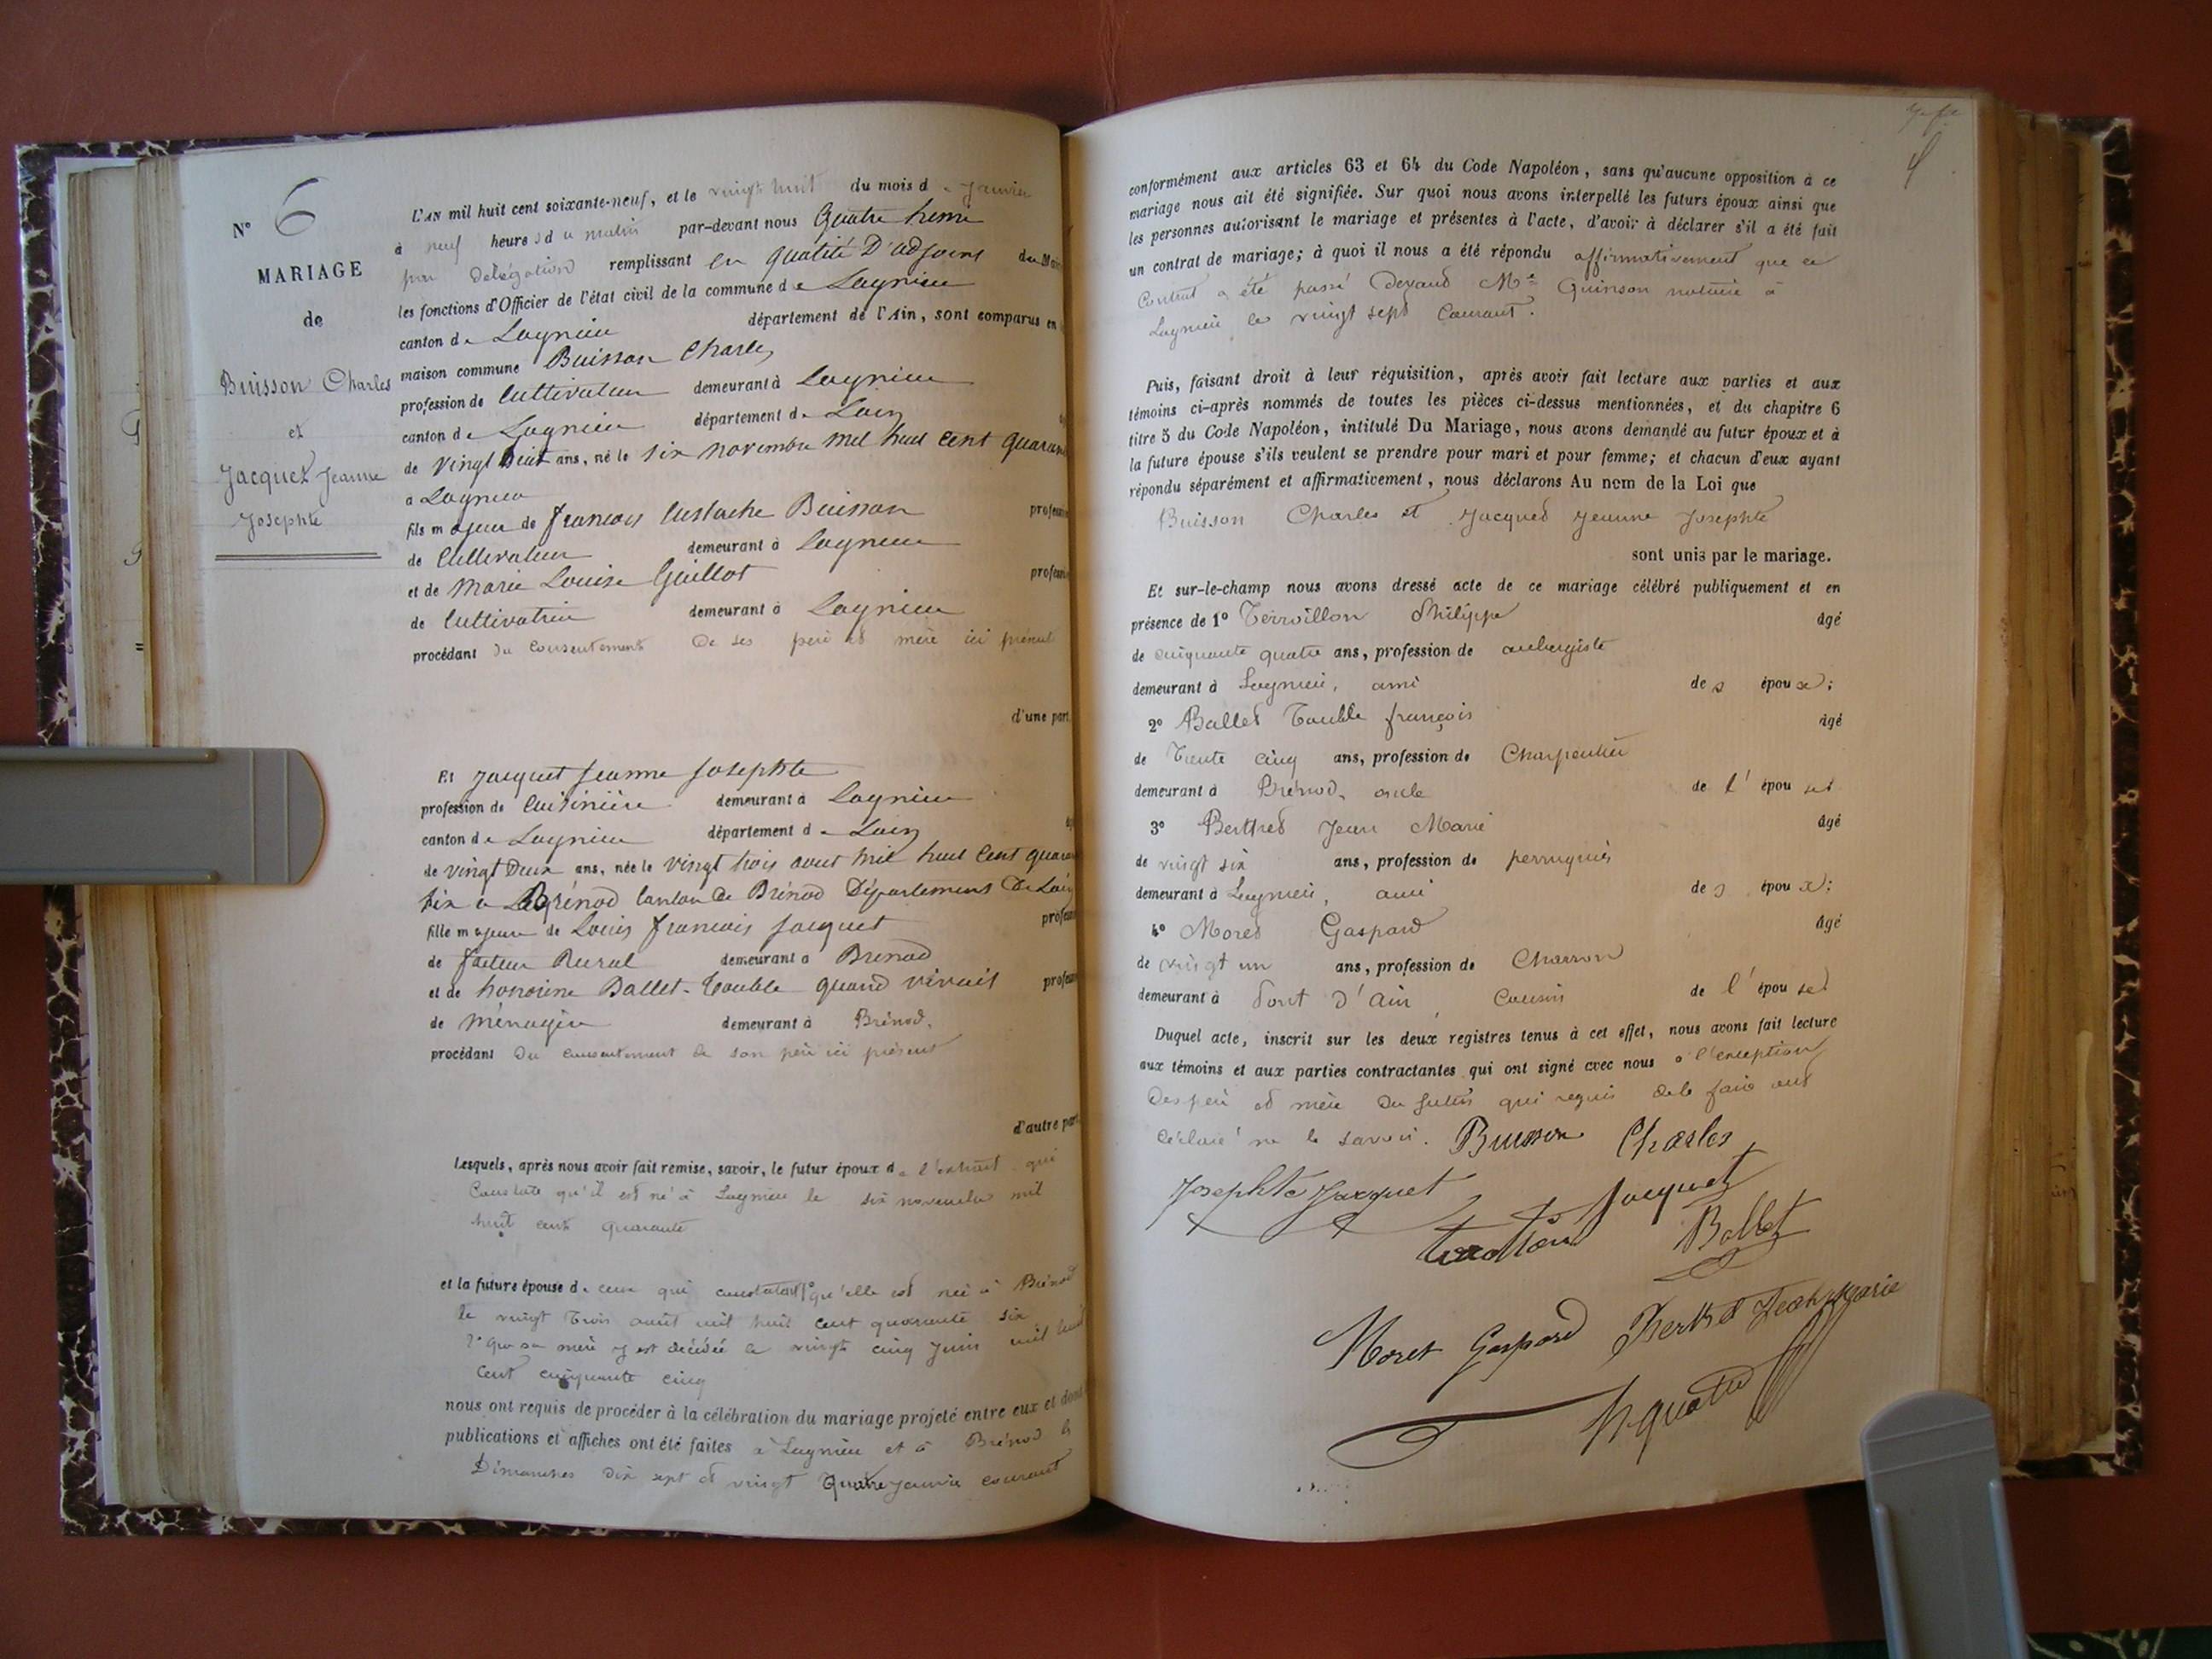 N° 6
MARIAGE
de
Buisson Charles
et
Jacquet Jeanne
Josephte
L'AN mil huit cent soixante-neuf, et le vingt huit du mois de Janvier
à neuf heures du matin par-devant nous Quatre
par délégation remplissant en qualité D'adjoint du Maire
les fonctions d'Officier de l'état civil de la commune de Lagnieu
canton de Lagnieu département de l'Ain, sont comparus en
maison commune Buisson Charles
profession de Cultivateur demeurant à Lagnieu
canton de Lagnieu département de Lain
de Vingt huit ans, né le six novembre mil huit cent quarante
a Lagnieu
fils majeur de francois Eustache Buisson profession
de Cultivateur demeurant à Lagnieu
et de Marie Louise Guillot profession
de Cultivatrice demeurant à Lagnieu
procédant du consentement de ses père et mère ici présents
d'une part.
Et Jacquet Jeanne Josephte
profession de Cuisinière demeurant à Lagnieu
canton de Lagnieu département de Lain
de vingt Deux ans, née le vingt trois aout mil huit cent quarante
six a Brénod Canton de Brénod Département De Lain
fille majeure de Louis francois Jacquet profession
de facteur Rural demeurant a Brenod
et de honorine Ballet-Touble quand vivait profession
de Ménagère demeurant à Brénod.
procédant Du consentement de son père ici présent
d'autre part.
Lesquels, après nous avoir fait remise, savoir, le futur époux de l'extrait qui
Constate qu'il est né à Lagnieu le six novembre mil
huit cent quarante
et la future épouse de ceux qui constatent 1° qu'elle est née à Brénod
le vingt Trois août mil huit cent quarante six
2° que sa mère y est décédée le vingt cinq Juin mil huit
Cent cinquante cinq
nous ont requis de procéder à la célébration du mariage projeté entre eux et dont
publications et affiches ont été faites à Lagnieu et à Brénod les
Dimanches Dix sept et vingt Quatre Janvier courant
conformément aux articles 63 et 64 du Code Napoléon, sans qu'aucune opposition à ce
mariage nous ait été signifiée. Sur quoi nous avons interpellé les futurs époux ainsi que
les personnes autorisant le mariage et présentes à l'acte, d'avoir à déclarer s'il a été fait
un contrat de mariage; à quoi il nous a été répondu affirmativement que ce
Contrat a été passé Devant Me Quinson notaire à
Lagnieu le vingt sept Courant.
Puis, faisant droit à leur réquisition, après avoir fait lecture aux parties et aux
témoins ci-après nommés de toutes les pièces ci-dessus mentionnées, et du chapitre 6
titre 5 du Code Napoléon, intitulé Du Mariage, nous avons demandé au futur époux et à
la future épouse s'ils veulent se prendre pour mari et pour femme; et chacun d'eux ayant
répondu séparément et affirmativement, nous déclarons Au nom de la Loi que
Buisson Charles et Jacquet Jeanne Josephte
sont unis par le mariage.
Et sur-le-champ nous avons dressé acte de ce mariage célébré publiquement et en
présence de 1° Terroillon Philippe âgé
de cinquante quatre ans, profession de aubergiste
demeurant à Lagnieu, ami des époux;
2° Ballet Touble françois âgé
de Trente cinq ans, profession de Charpentier
demeurant à Brénod, oncle de l'épouse
3° Berthet Jean Marie âgé
de vingt six ans, profession de perruquier
demeurant à Lagnieu, ami des époux;
4° Moret Gaspard âgé
de vingt un ans, profession de Charron
demeurant à Pont D'Ain, Cousin de l'épouse
Duquel acte, inscrit sur les deux registres tenus à cet effet, nous avons fait lecture
aux témoins et aux parties contractantes qui ont signé avec nous à l'exception
Des père et mère Du futur qui requis de le faire ont
Déclaré ne le savoir. Buisson Charles
Josephte Jacquet Jacquet
Ballet
Moret Gaspard Berthet Jean Marie